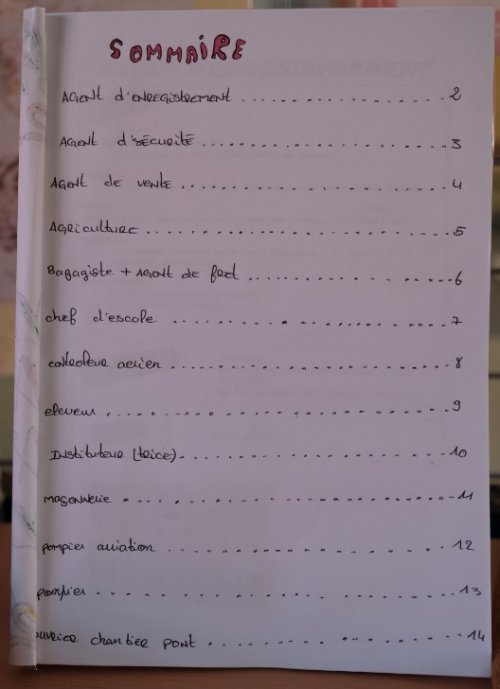 SOMMAIRE
AGENT d'ENREGISTREMENT .................. 2
AGENT d'SÉCURITÉ .................. 3
AGENT DE VENTE .................. 4
AGRICULTURE .................. 5
Bagagiste + AGENT DE fret .................. 6
chef d'escale .................. 7
controleur aerien .................. 8
eleveur .................. 9
INStituteur (trice) .................. 10
maçonnerie .................. 11
pompier aviation .................. 12
pompier .................. 13
ouvrier chantier PONT .................. 14